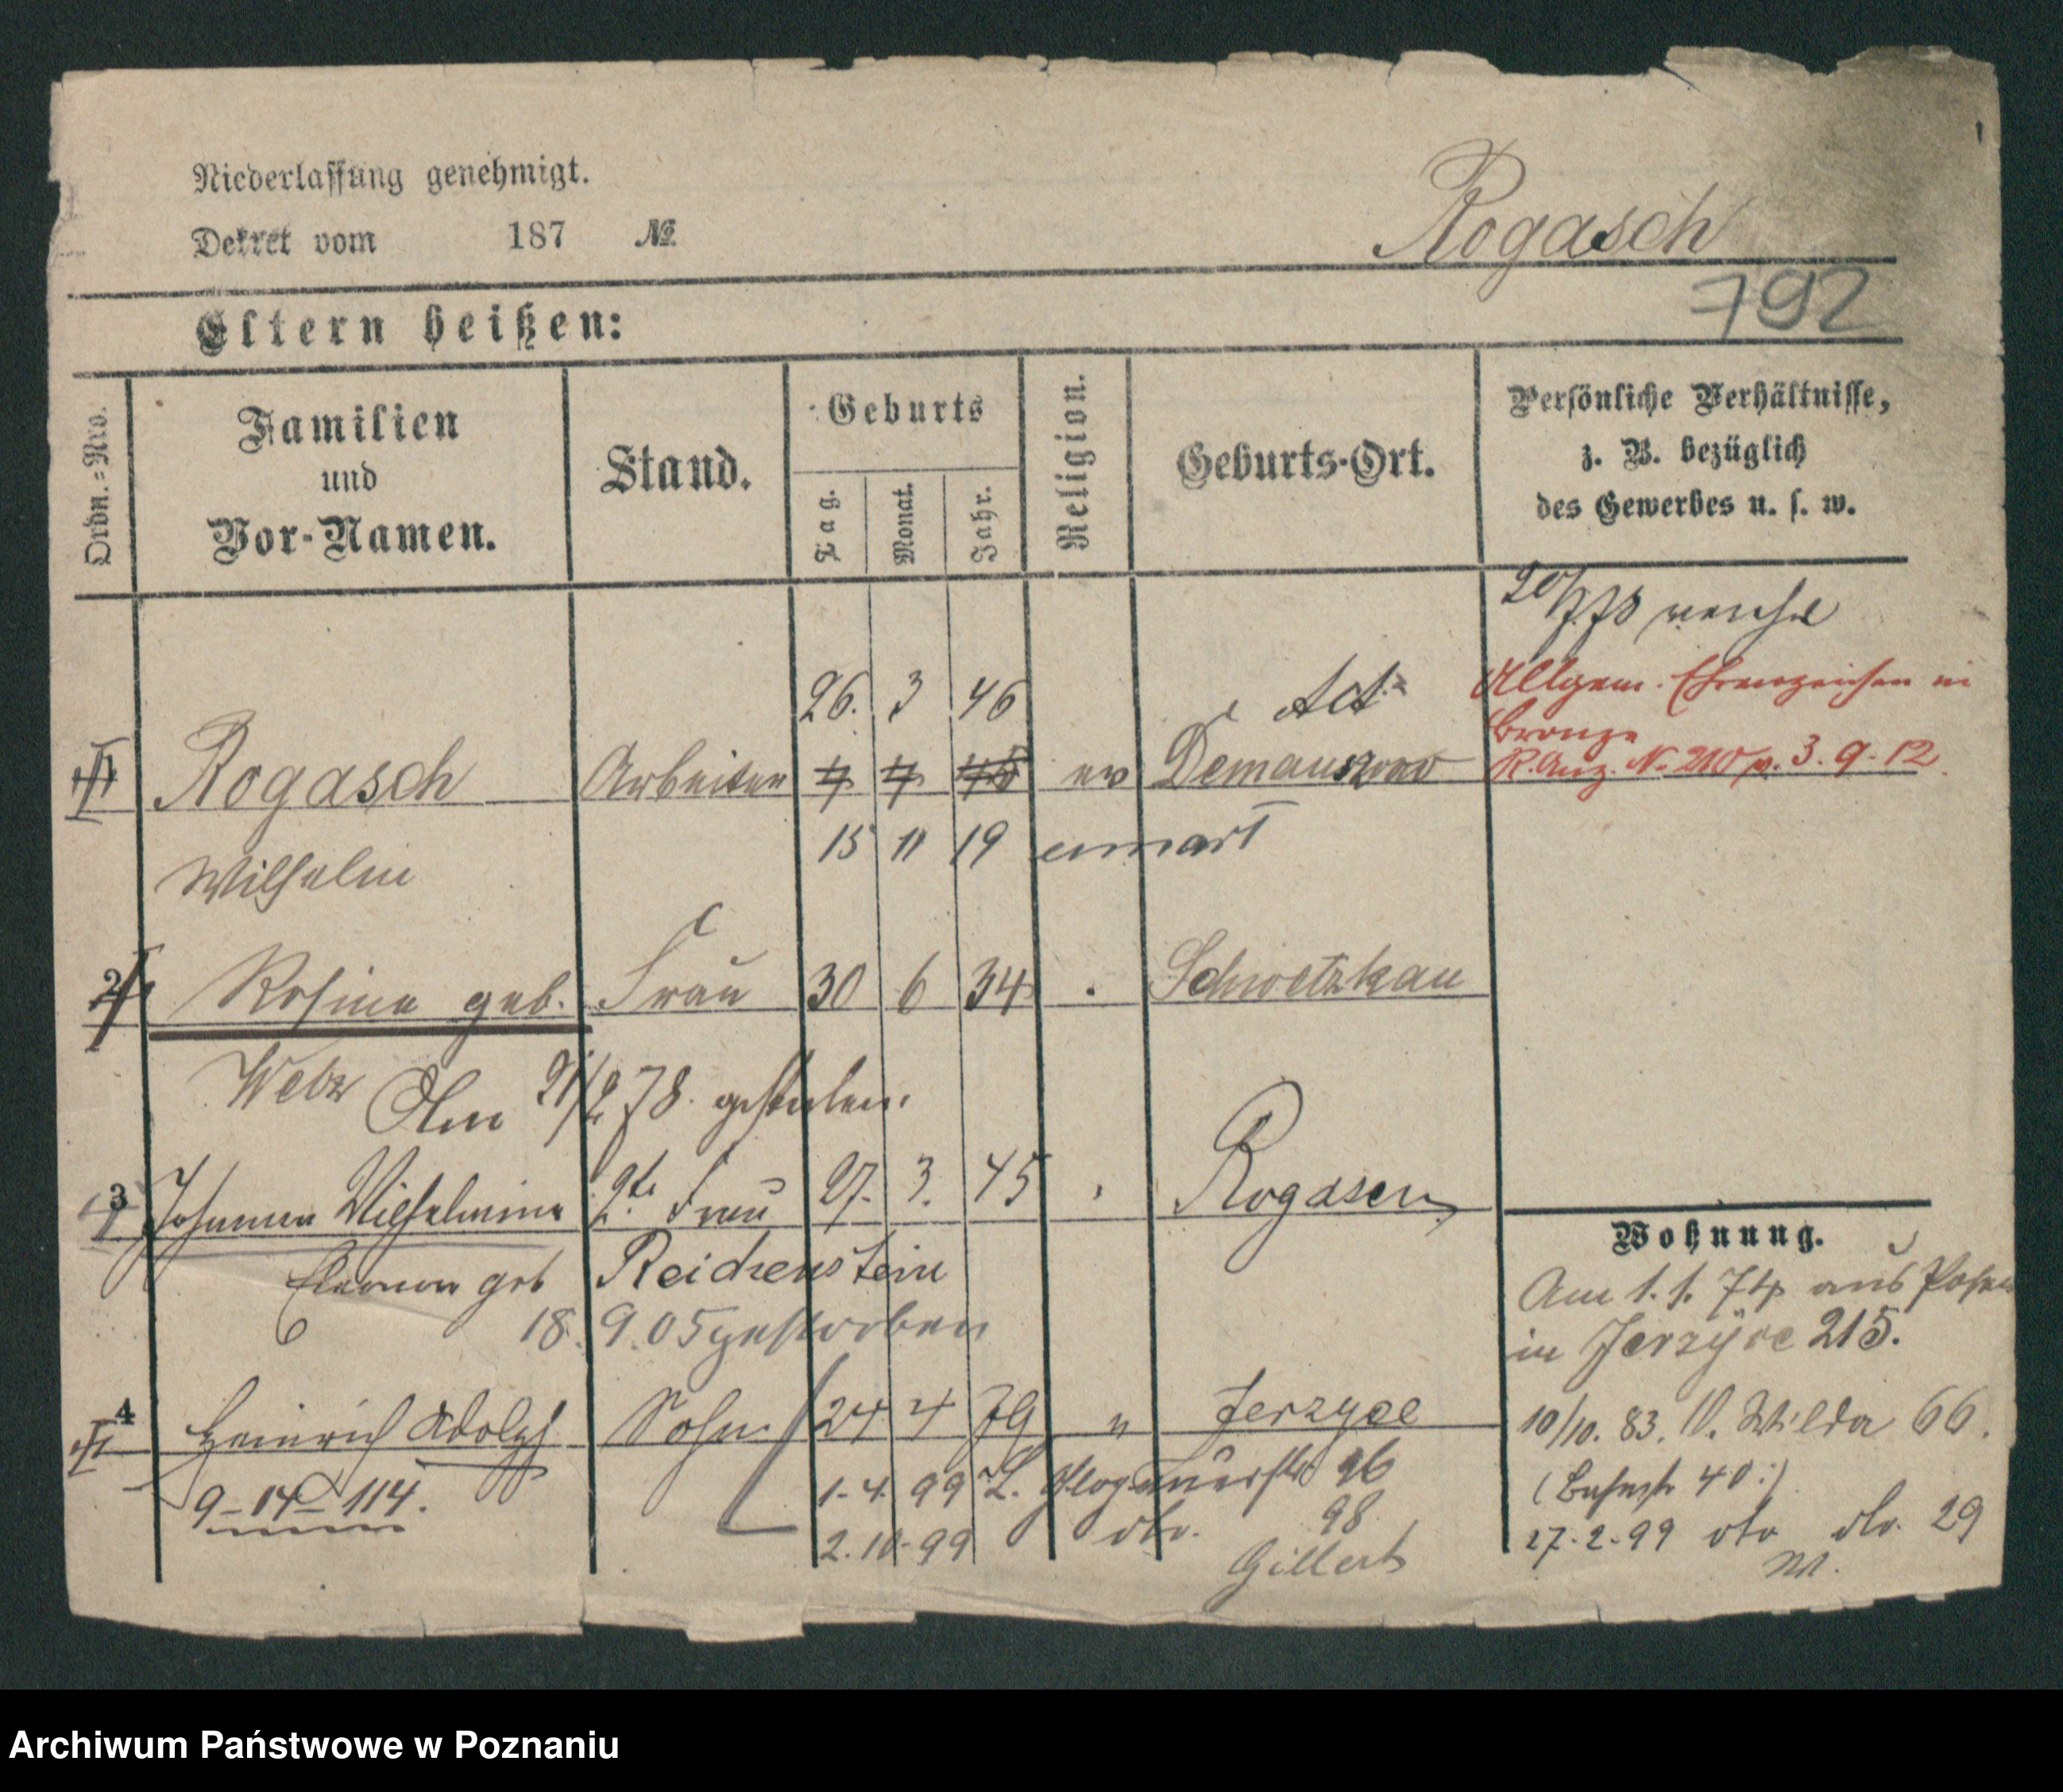 Niederlassung genehmigt.
Dekret vom 187 №
Rogasch
792
Eltern heißen:
Ordn.-Nro.
Familien
und
Vor-Namen.
Stand.
Geburts
Tag.
Monat.
Jahr.
Religion.
Geburts-Ort.
Persönliche Verhältnisse,
z. B. bezüglich
des Gewerbes u. s. w.
26. 3 46
Act
Allgem. Ehrenzeichen in
Bronze
R. Anz. No 210 v. 3. 9. 12
Rogasch Arbeiter 4 4 45 ev
15 11 19
Wilhelm
2 Rosine geb. Frau 30 6 34 Schwetzkau
Am 21/2 78. gestorben.
3 Johanna Wilhelmine 2te Frau 27. 3. 45 Rogasen
geb Reichenstein
18. 9. 05 gestorben
4 Heinrich Adolph Sohn 24 4 79 " Jerzyce
9-14-114.
1. 4. 99 Glogauerstr 96
2. 10. 99 dto. 98
Gillert
Wohnung.
Am 1. 1. 74 aus Posen
in Jerzyce 215.
10/10. 83. Wilda 66.
(Bahnstr 40.)
27. 2. 99 dto dto. 29
Archiwum Państwowe w Poznaniu